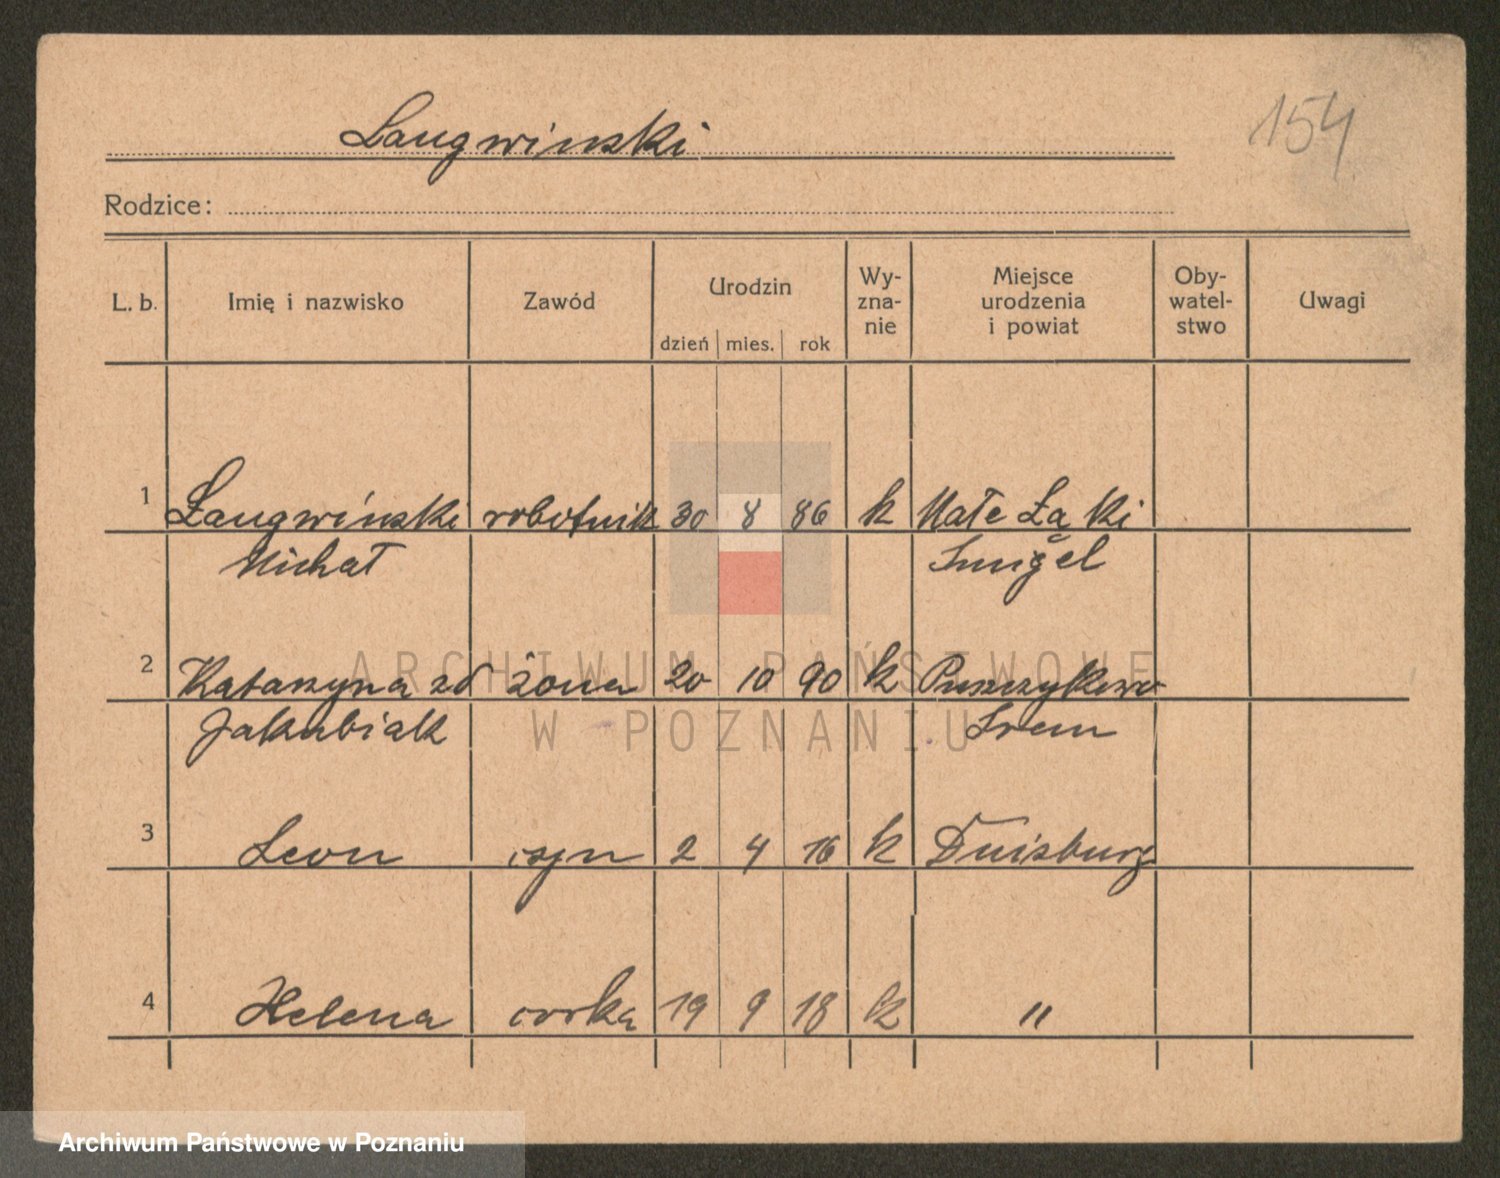 Langwinski
154
Rodzice:
L. b. Imię i nazwisko Zawód Urodzin dzień mies. rok Wy-zna-nie Miejsce urodzenia i powiat Oby-watel-stwo Uwagi
1 Langwiński robotnik 30 8 86 k Małe Łąki
Michał Smigel
2 Katarzyna zd żona 20 10 90 k Puszczykowo
Jakubiak Srem
3 Leon syn 2 4 16 k Duisburg
4 Helena corka 19 9 18 k "
ARCHIWUM PAŃSTWOWE
W POZNANIU
Archiwum Państwowe w Poznaniu